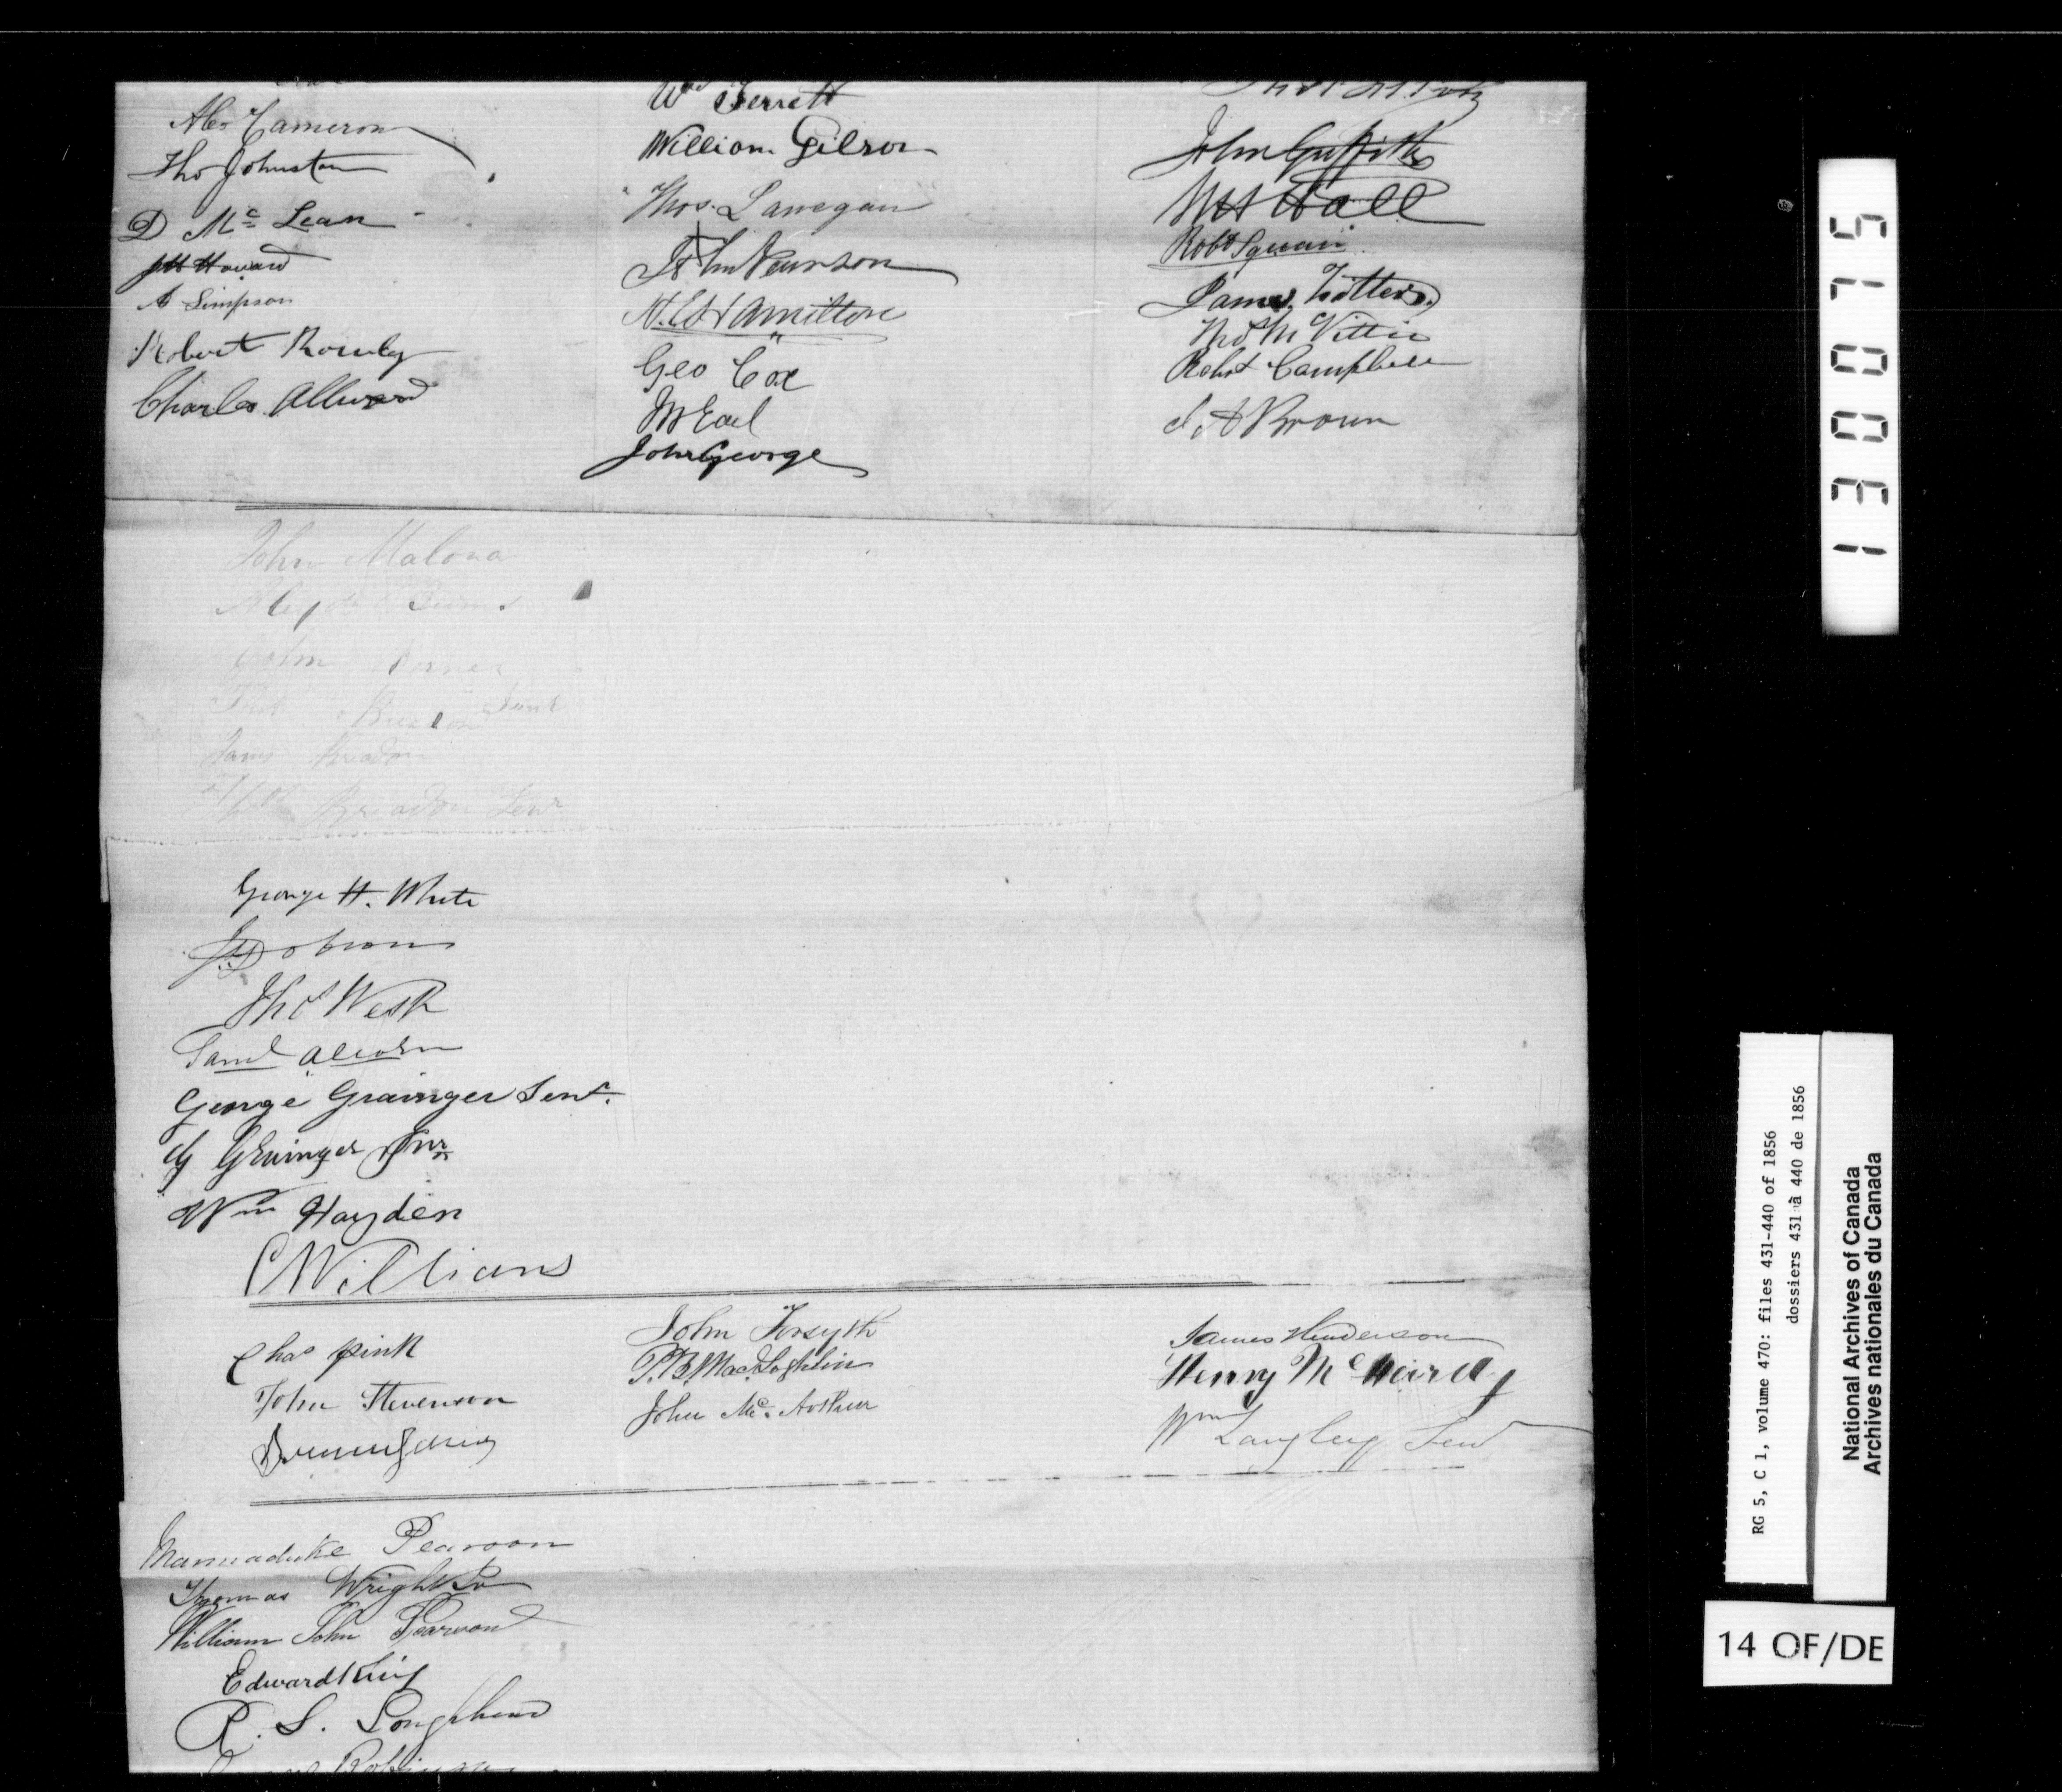 Alex Cameron
Tho Johnston
D Mc Lean
JH Howard
A Simpson
Robert Rowley
Charles Allward
Wm Ferrett
William Gilson
Thos. Lanegan
John Pearson
Geo Cox
John George
John Griffith
Wm Hall
Robt Squair
James Trotter
Thos McVittie
Robt Campbell
J A Brown
John Malona
James Breadon
Breadon Senr
George H. White
J Dobson
Thos West
Saml Alcorn
George Grainger Senr.
G Grainger Jnr
Wm Hayden
C Williams
Chas pink
John Stevenson
John Forsyth
P.B. MacLoghlin
John Mc. Arthur
James Henderson
Henry Mc
Wm Langley Senr
Marmaduke Pearson
Thomas Wright
William John Pearson
Edward King
R. S.
Robinson
130075
RG 5, C 1, volume 470: files 431-440 of 1856
dossiers 431 à 440 de 1856
National Archives of Canada
Archives nationales du Canada
14 OF/DE